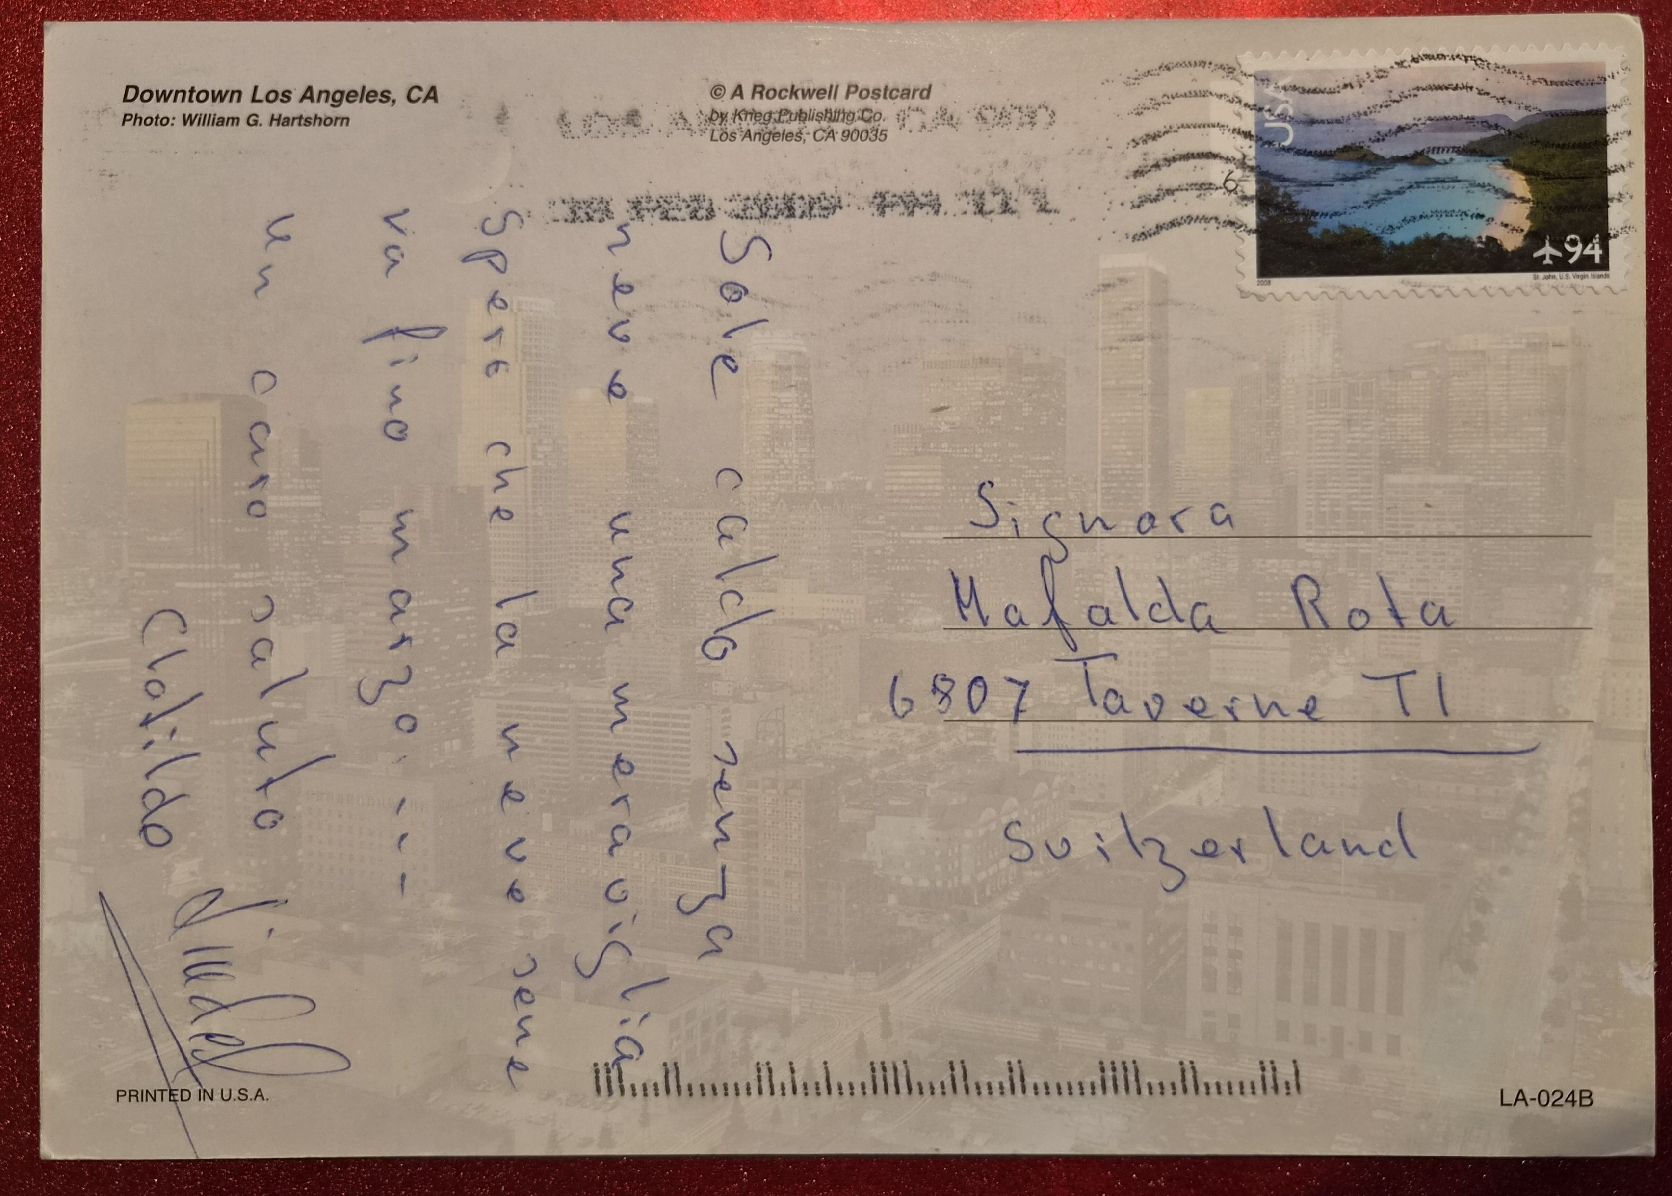 Downtown Los Angeles, CA
Photo: William G. Hartshorn
© A Rockwell Postcard
by Krieg Publishing Co.
Los Angeles, CA 90035
LOS ANGELES CA 900
FEB 2009 PM 11 L
USA
94
St. John, U.S. Virgin Islands
2008
Sole caldo senza
neve una meraviglia
Spero che la neve sene
va fino marzo....
Un caro saluto
Clotildo
Signora
Mafalda Rota
6807 Taverne TI
Svitzerland
PRINTED IN U.S.A.
LA-024B